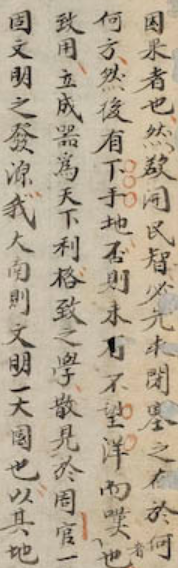 因果者也然啟開民智必先求閉塞之在於何
何方然後有下手地否則未有不望洋而嘆者也
致用立成器爲天下利格致之學散見於周官一
固文明之發源我大南則文明一大國也以其地